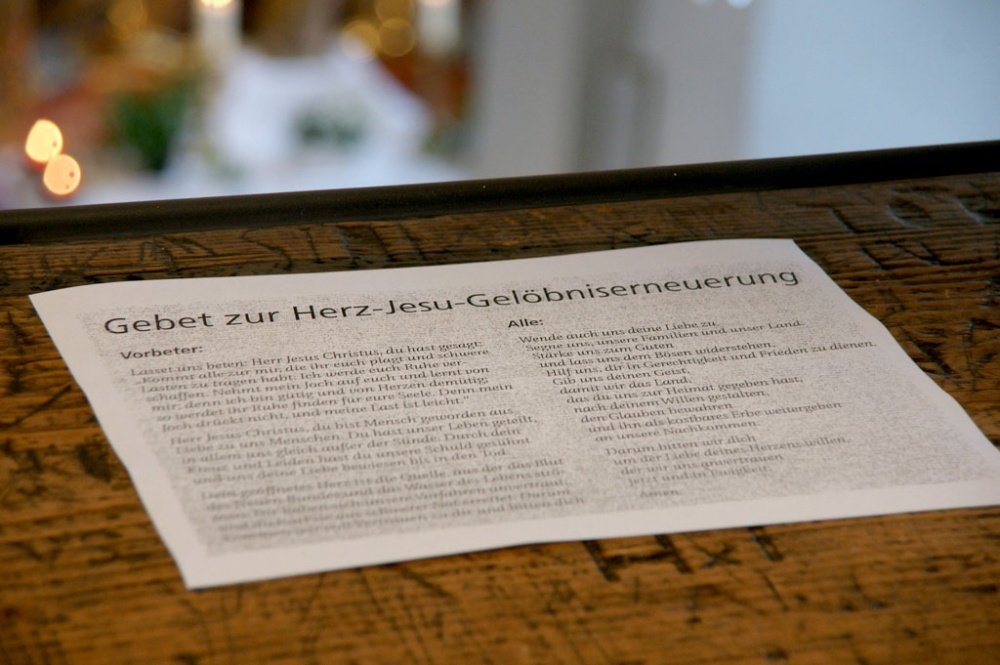 Gebet zur Herz-Jesu-Gelöbniserneuerung
Vorbeter:
Lasset uns beten: Herr Jesus Christus, du hast gesagt:
„Kommt alle zu mir, die ihr euch plagt und schwere
Lasten zu tragen habt. Ich werde euch Ruhe ver-
schaffen. Nehmt mein Joch auf euch und lernt von
mir; denn ich bin gütig und von Herzen demütig;
so werdet ihr Ruhe finden für eure Seele. Denn mein
Joch drückt nicht, und meine Last ist leicht.“
Herr Jesus Christus, du bist Mensch geworden aus
Liebe zu uns Menschen. Du hast unser Leben geteilt,
in allem uns gleich außer der Sünde. Durch dein
Kreuz und Leiden hast du unsere Schuld gesühnt
und uns deine Liebe bewiesen bis in den Tod.
Dein geöffnetes Herz ist die Quelle, aus der das Blut
des Neuen Bundes und das Wasser des Lebens
unsere Vorfahren
Alle:
Wende auch uns deine Liebe zu.
Segne uns, unsere Familien und unser Land.
Stärke uns zum Guten
und lass uns dem Bösen widerstehen.
Hilf uns, dir in Gerechtigkeit und Frieden zu dienen.
Gib uns deinen Geist,
damit wir das Land,
das du uns zur Heimat gegeben hast,
nach deinem Willen gestalten,
den Glauben bewahren
und ihn als kostbares Erbe weitergeben
an unsere Nachkommen.
Darum bitten wir dich
um der Liebe deines Herzens willen,
der wir uns anvertrauen
jetzt und in Ewigkeit.
Amen.